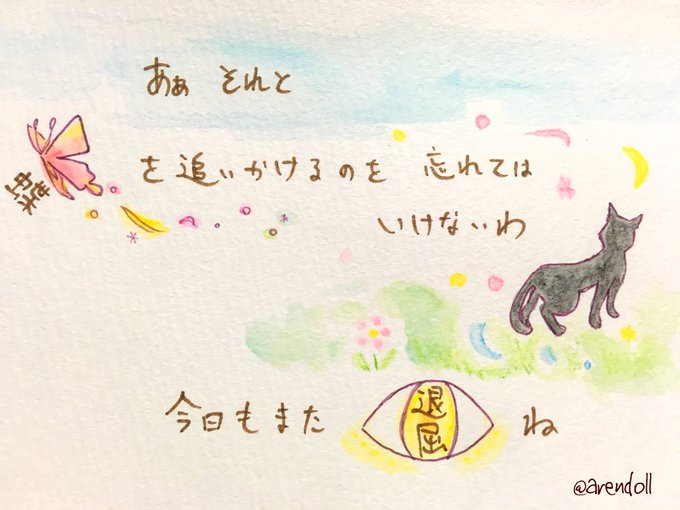 あぁ それと
蝶
を追いかけるのを 忘れては
いけないわ
今日もまた 退屈 ね
@arendoll